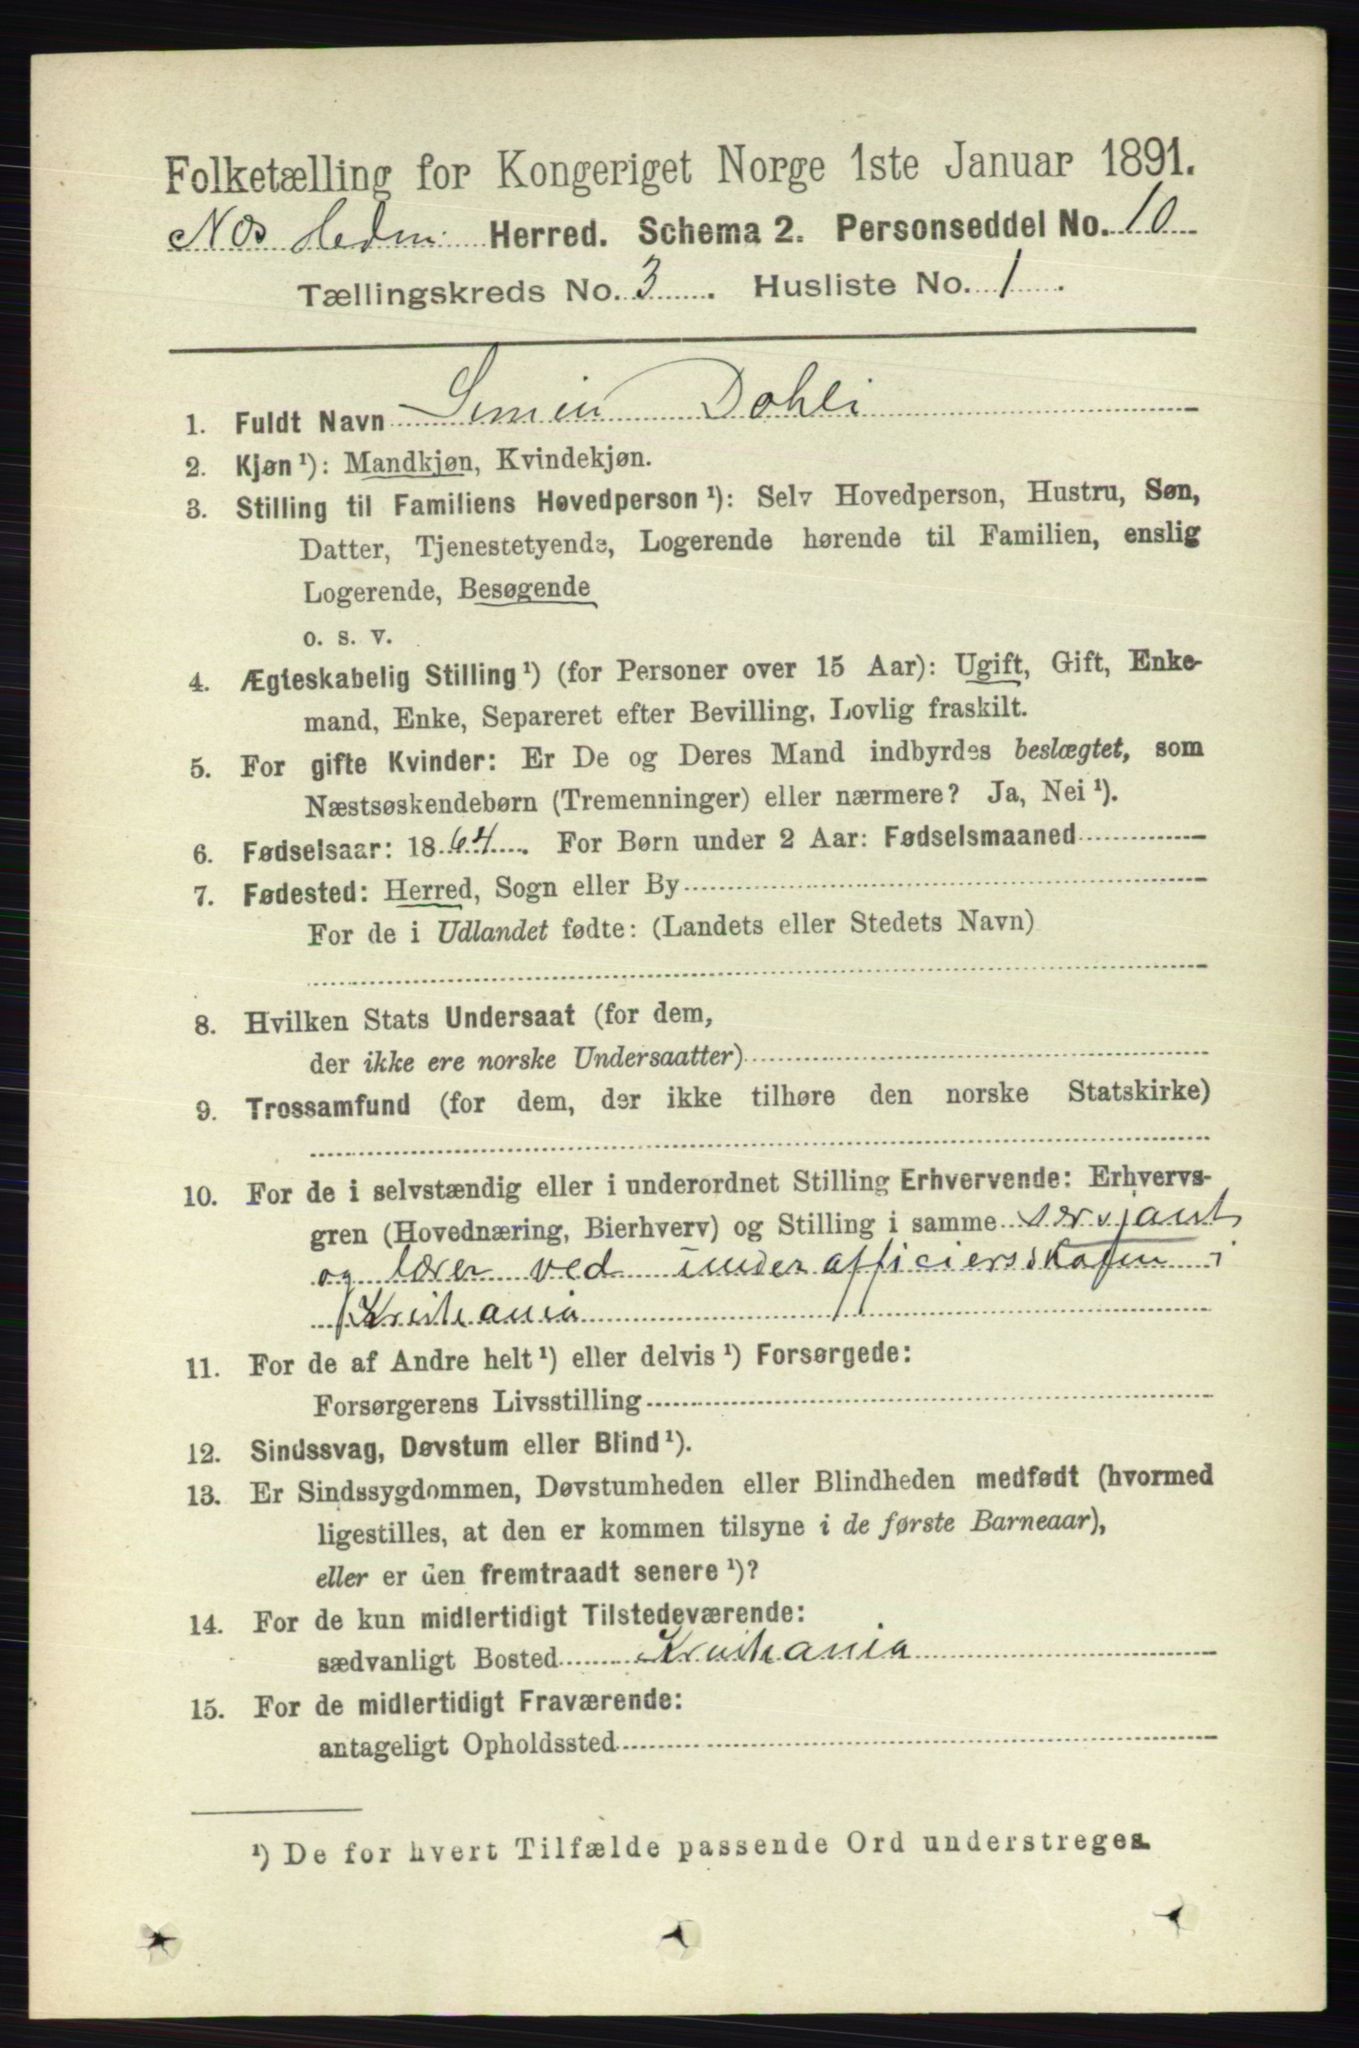 Folketælling for Kongeriget Norge 1ste Januar 1891.
Næs Hedm. Herred. Schema 2. Personseddel No. 10
Tællingskreds No. 3. Husliste No. 1.
1. Fuldt Navn Simen Dohli
2. Kjøn¹): Mandkjøn, Kvindekjøn.
3. Stilling til Familiens Hovedperson¹): Selv Hovedperson, Hustru, Søn,
Datter, Tjenestetyende, Logerende hørende til Familien, enslig
Logerende, Besøgende
o. s. v.
4. Ægteskabelig Stilling¹) (for Personer over 15 Aar): Ugift, Gift, Enke-
mand, Enke, Separeret efter Bevilling, Lovlig fraskilt.
5. For gifte Kvinder: Er De og Deres Mand indbyrdes beslægtet, som
Næstsøskendebørn (Tremenninger) eller nærmere? Ja, Nei¹).
6. Fødselsaar: 1864. For Børn under 2 Aar: Fødselsmaaned
7. Fødested: Herred, Sogn eller By
For de i Udlandet fødte: (Landets eller Stedets Navn)
8. Hvilken Stats Undersaat (for dem,
der ikke ere norske Undersaatter)
9. Trossamfund (for dem, der ikke tilhøre den norske Statskirke)
10. For de i selvstændig eller i underordnet Stilling Erhvervende: Erhvervs-
gren (Hovednæring, Bierhverv) og Stilling i samme sersjant
og lærer ved underofficiersskolen i
Kristiania
11. For de af Andre helt¹) eller delvis¹) Forsørgede:
Forsørgerens Livsstilling
12. Sindssvag, Døvstum eller Blind¹).
13. Er Sindssygdommen, Døvstumheden eller Blindheden medfødt (hvormed
ligestilles, at den er kommen tilsyne i de første Barneaar),
eller er den fremtraadt senere¹)?
14. For de kun midlertidigt Tilstedeværende:
sædvanligt Bosted Kristiania
15. For de midlertidigt Fraværende:
antageligt Opholdssted
¹) De for hvert Tilfælde passende Ord understreges.